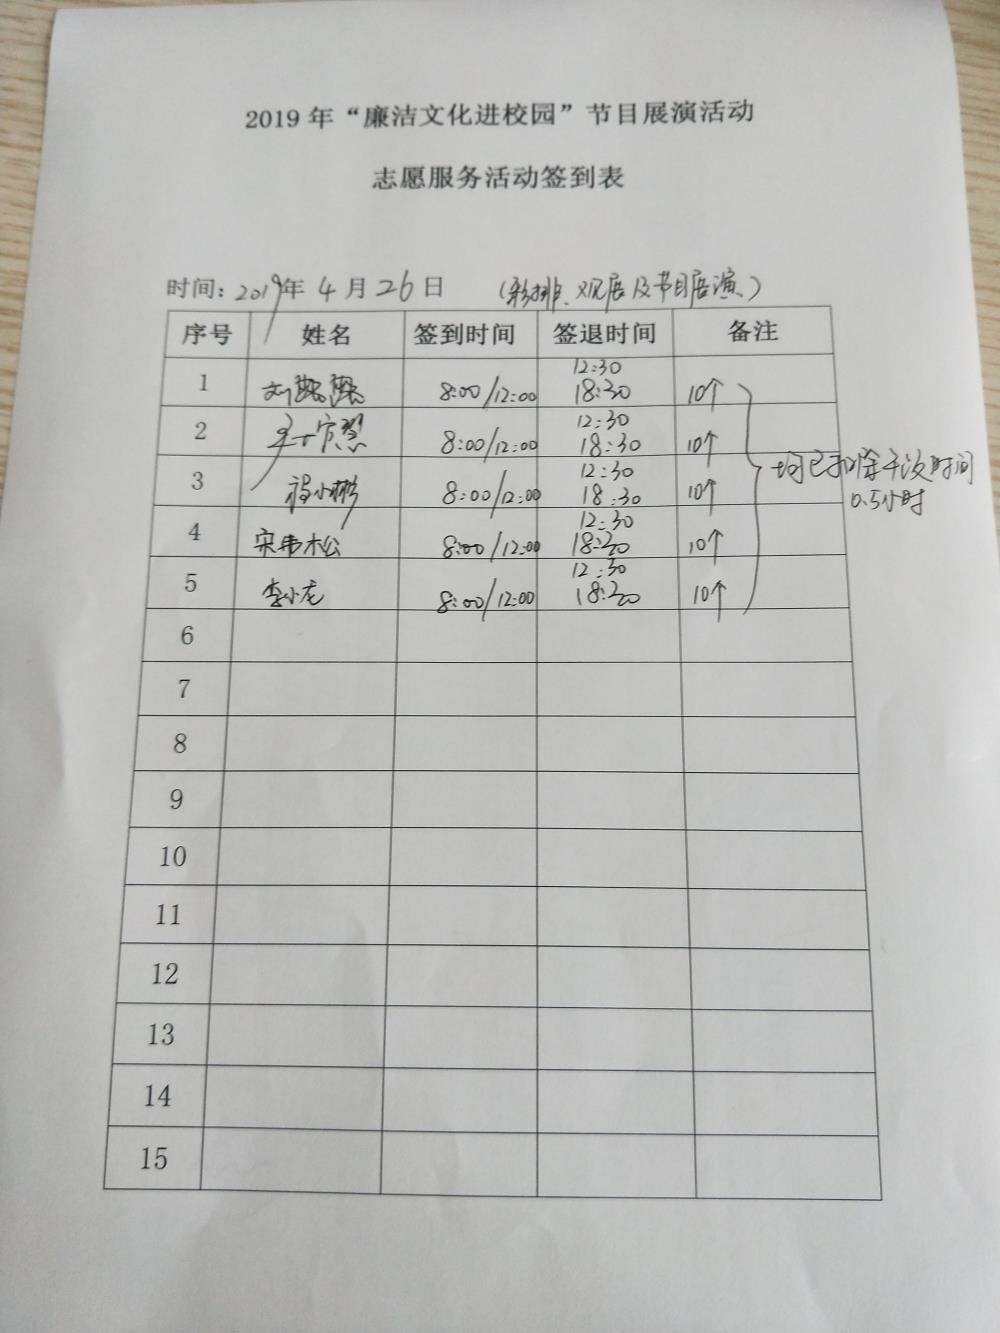 2019年“廉洁文化进校园”节目展演活动
志愿服务活动签到表
时间：2019年 4 月 26 日 （彩排、观展及节目展演）
序号 姓名 签到时间 签退时间 备注
12:30
1 8:00/12:00 18:30 10个
12:30
2 8:00/12:00 18:30 10个
12:30
3 小彬 8:00/12:00 18:30 10个
12:30
4 宋韦松 8:00/12:00 18:30 10个
12:30
5 李小龙 8:00/12:00 18:30 10个
均已扣除午饭时间
0.5小时
6
7
8
9
10
11
12
13
14
15